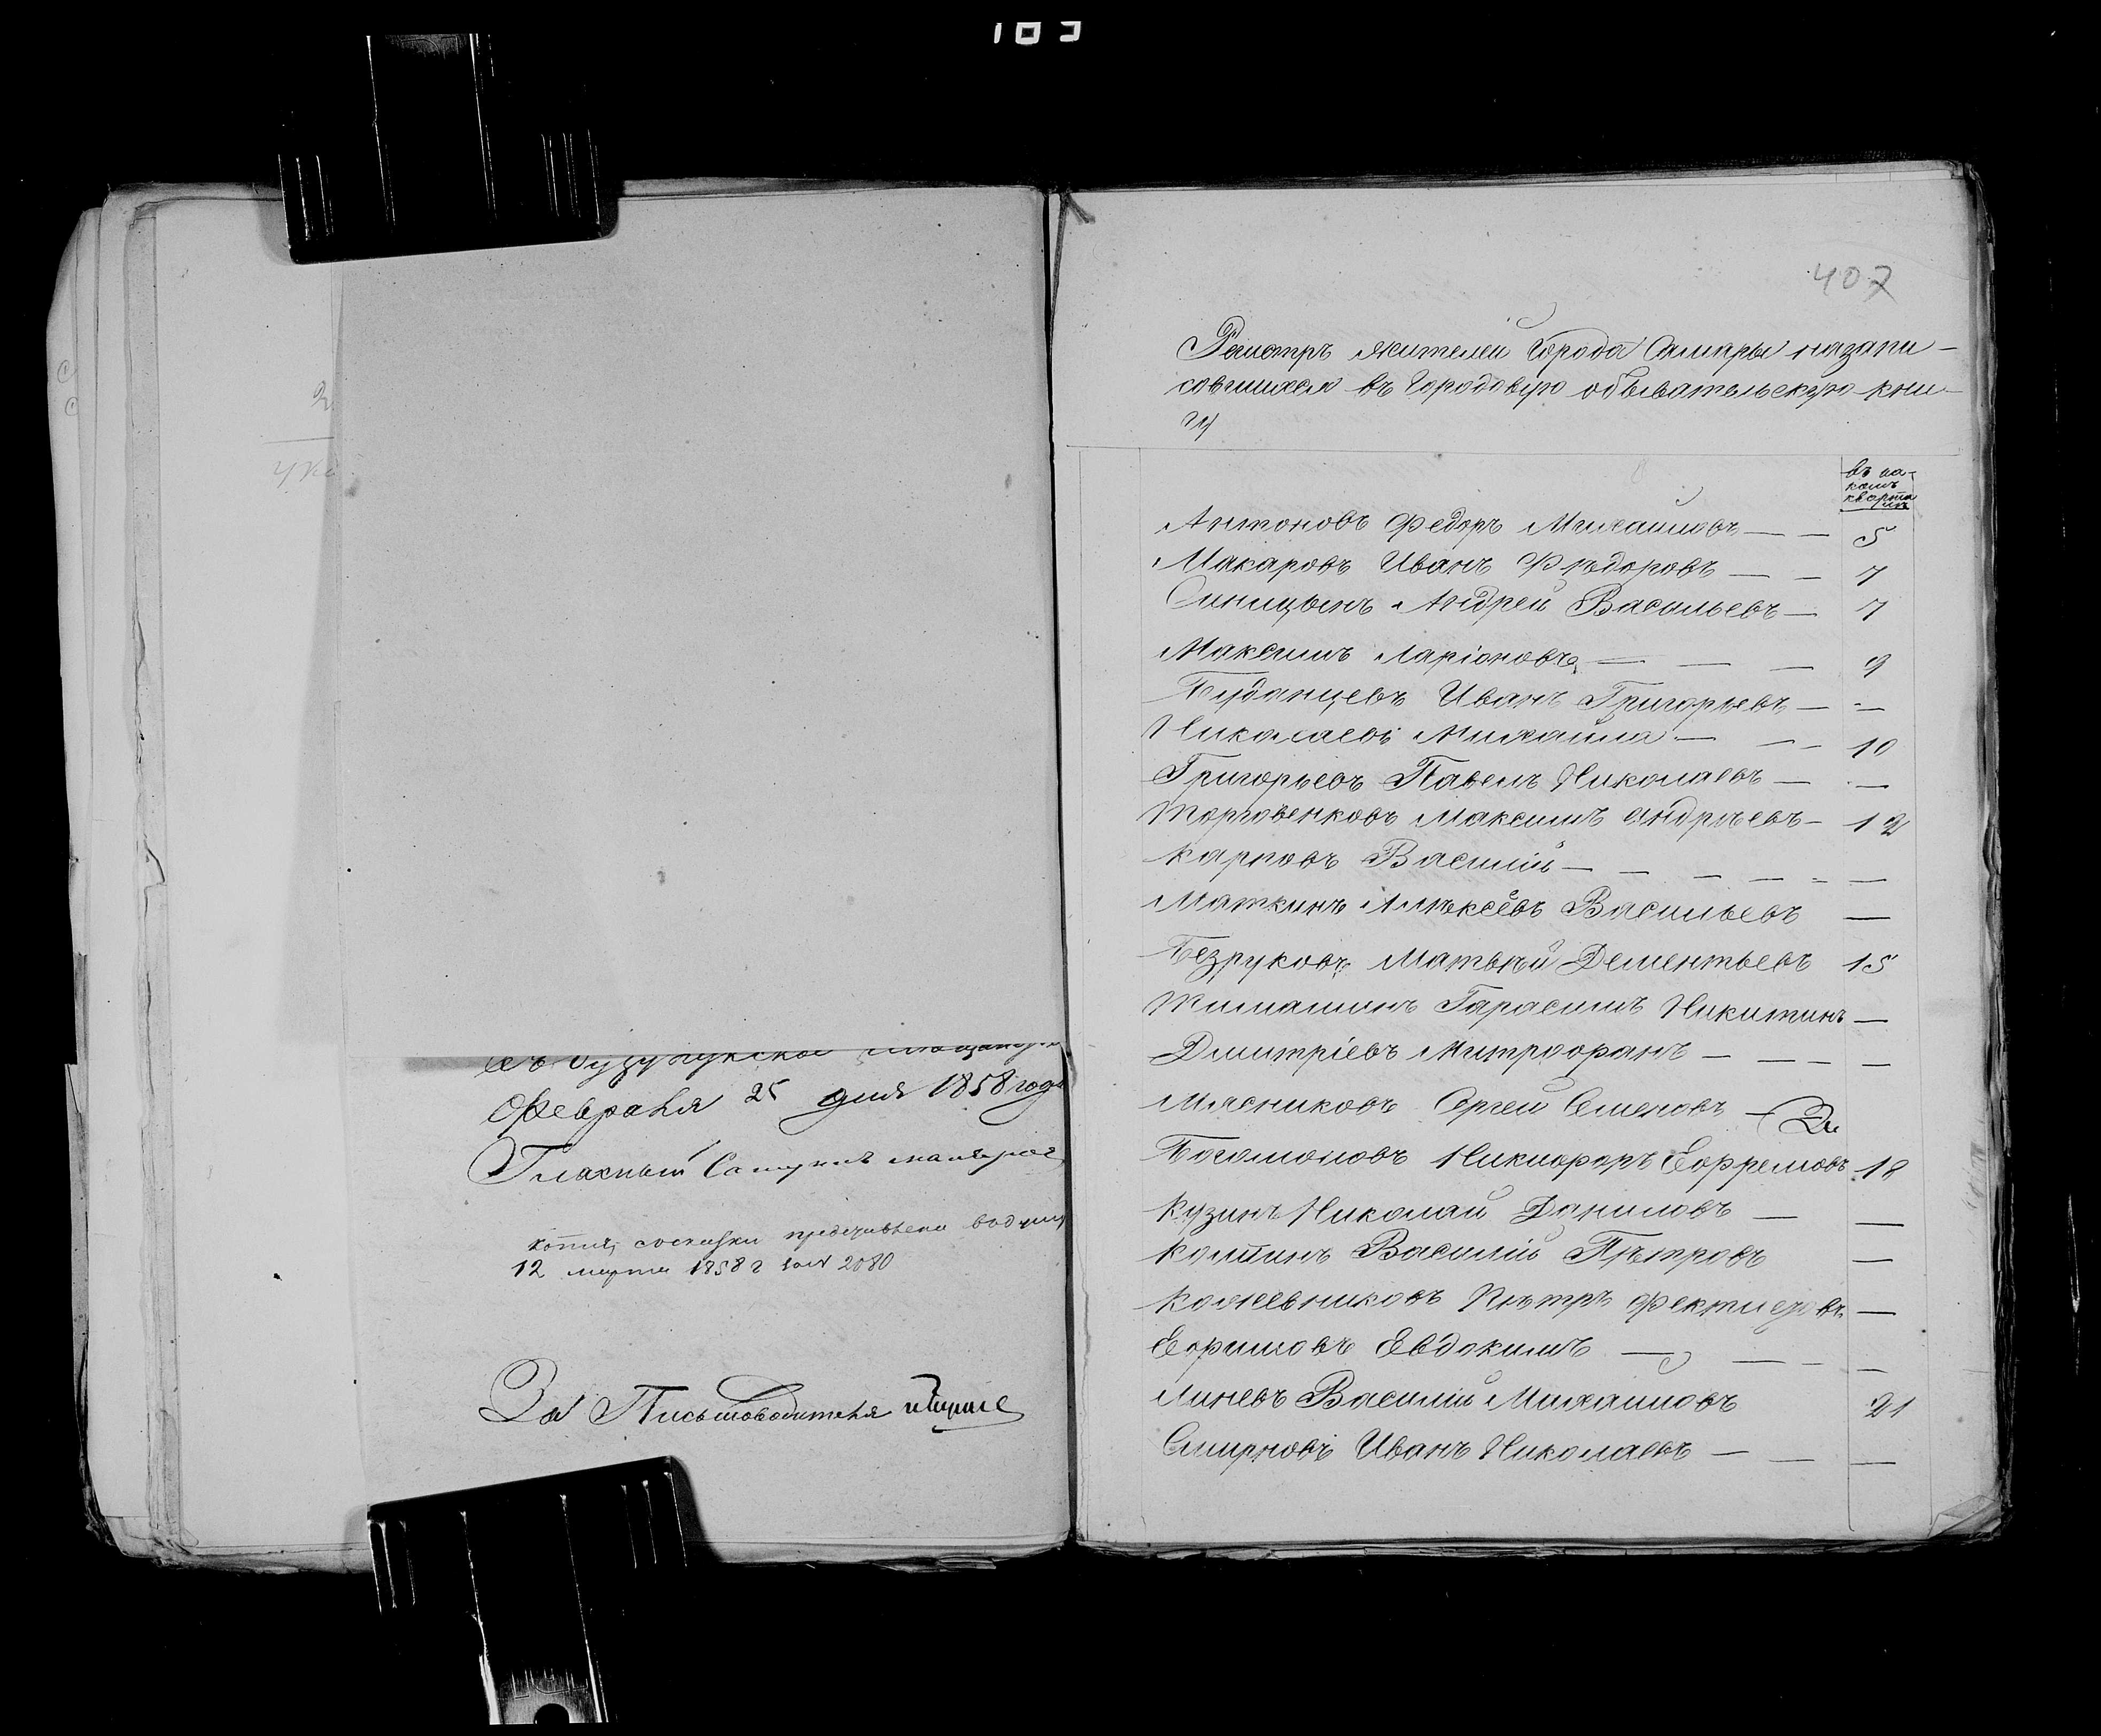 103
Февраля 25 дня 1858 года
Гласный
копия сосказки
12 марта 1858 г 2080
За Письмоводителя
407
Регистръ жителей Города Самары назапи-
савшихся въ Городовую обывательскую кни-
гу
въ ка-
комъ
кварта
Антоновъ Федоръ Михайловъ — — 5
Макаровъ Иванъ Фѣдоровъ — — 7
Синицынъ Андрей Васильевъ — 7
Максимъ Ларіоновъ — — — 9
Буданцевъ Иванъ Григорьевъ — —
Николаевъ Михайла — — — 10
Григорьевъ Павелъ Николаевъ — —
Торговенковъ Максимъ Андрѣевъ — 12
Карповъ Василій — — — — — —
Маткинъ Алѣксѣевъ Васильевъ —
Безруковъ Матвѣй Дементьевъ 15
Гарасимъ Никитинъ —
Дмитріевъ Митрофанъ — — — —
Мясниковъ Сергей Семеновъ —
Богомоловъ Никифоръ Ефремовъ 18
Кузинъ Николай Даниловъ — —
Василій Пѣтровъ —
Кожевниковъ Пѣтръ —
Ефимовъ Евдокимъ — — — —
Линевъ Василій Михаиловъ 21
Смирновъ Иванъ Николаевъ — — —